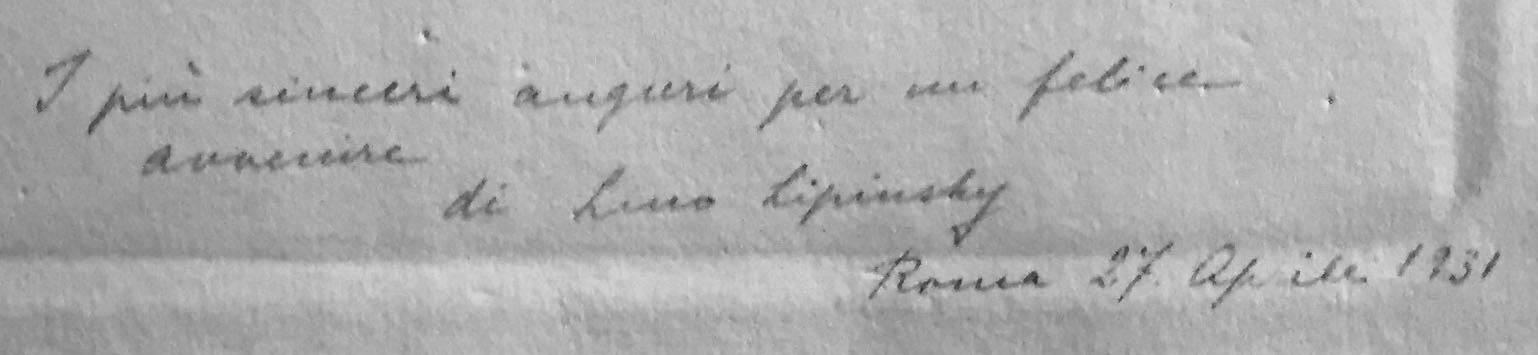 I più sinceri auguri per un felice
avvenire
di Lino Lipinsky
Roma 27 Aprile 1931